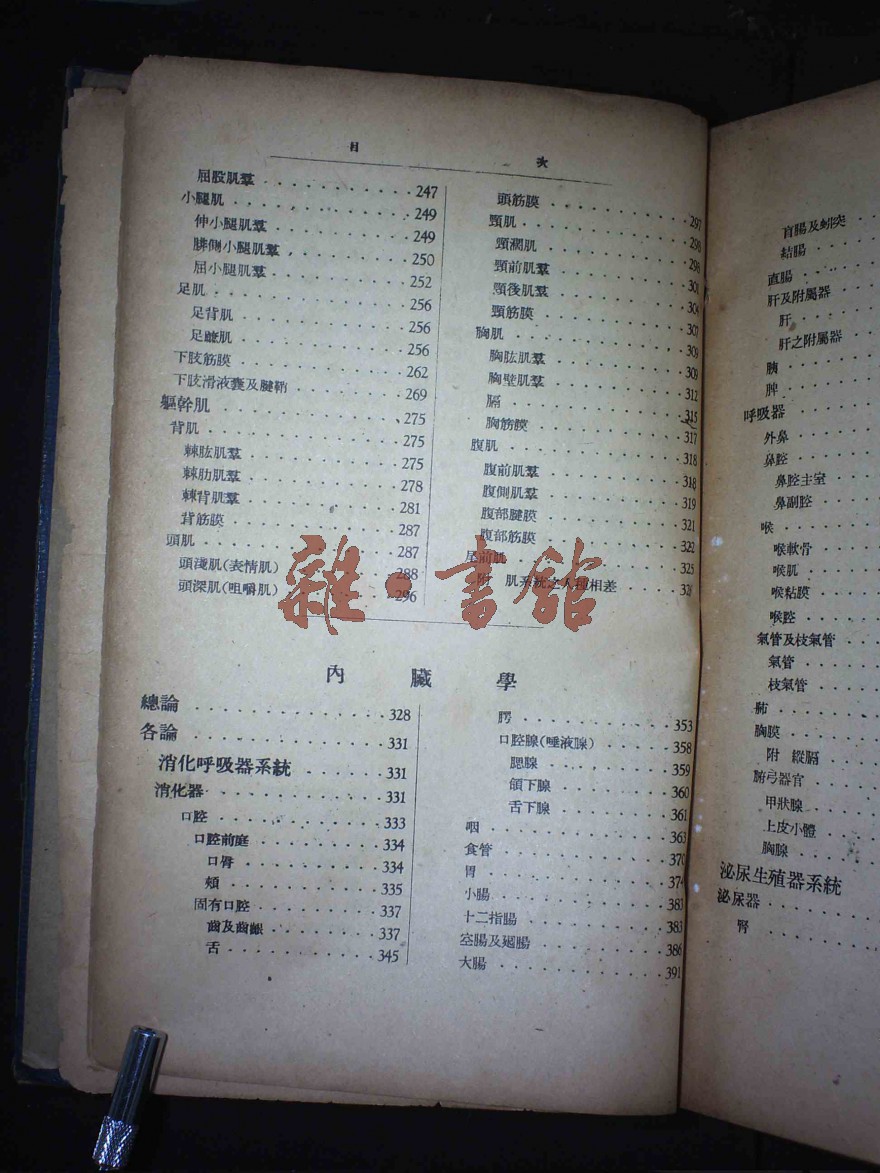 目 次
屈股肌羣 247
小腿肌 249
伸小腿肌羣 249
腓側小腿肌羣 250
屈小腿肌羣 252
足肌 256
足背肌 256
足蹠肌 256
下肢筋膜 262
下肢滑液囊及腱鞘 269
軀幹肌 275
背肌 275
棘肱肌羣 275
棘肋肌羣 278
棘背肌羣 281
背筋膜 287
頭肌 287
頭淺肌(表情肌) 288
頭深肌(咀嚼肌) 296
頭筋膜 297
頸肌 298
頸濶肌 298
頸前肌羣 301
頸後肌羣 304
頸筋膜 307
胸肌 309
胸肱肌羣 309
胸壁肌羣 312
膈 315
胸筋膜 317
腹肌 318
腹前肌羣 318
腹側肌羣 319
腹部腱膜 321
腹部筋膜 322
尾前肌 325
附 肌系統之人種相差
雜·書舘
內臟學
總論 328
各論 331
消化呼吸器系統 331
消化器 331
口腔 333
口腔前庭 334
口脣 334
頰 335
固有口腔 337
齒及齒齦 337
舌 345
腭 353
口腔腺(唾液腺) 358
腮腺 359
頜下腺 360
舌下腺 361
咽 363
食管 370
胃 374
小腸 383
十二指腸 383
空腸及廻腸 386
大腸 391
盲腸及蚓突
結腸
直腸
肝及附屬器
肝
肝之附屬器
胰
脾
呼吸器
外鼻
鼻腔
鼻腔主室
鼻副腔
喉
喉軟骨
喉肌
喉粘膜
喉腔
氣管及枝氣管
氣管
枝氣管
肺
胸膜
附 縱膈
腑弓器官
甲狀腺
上皮小體
胸腺
泌尿生殖器系統
泌尿器
腎